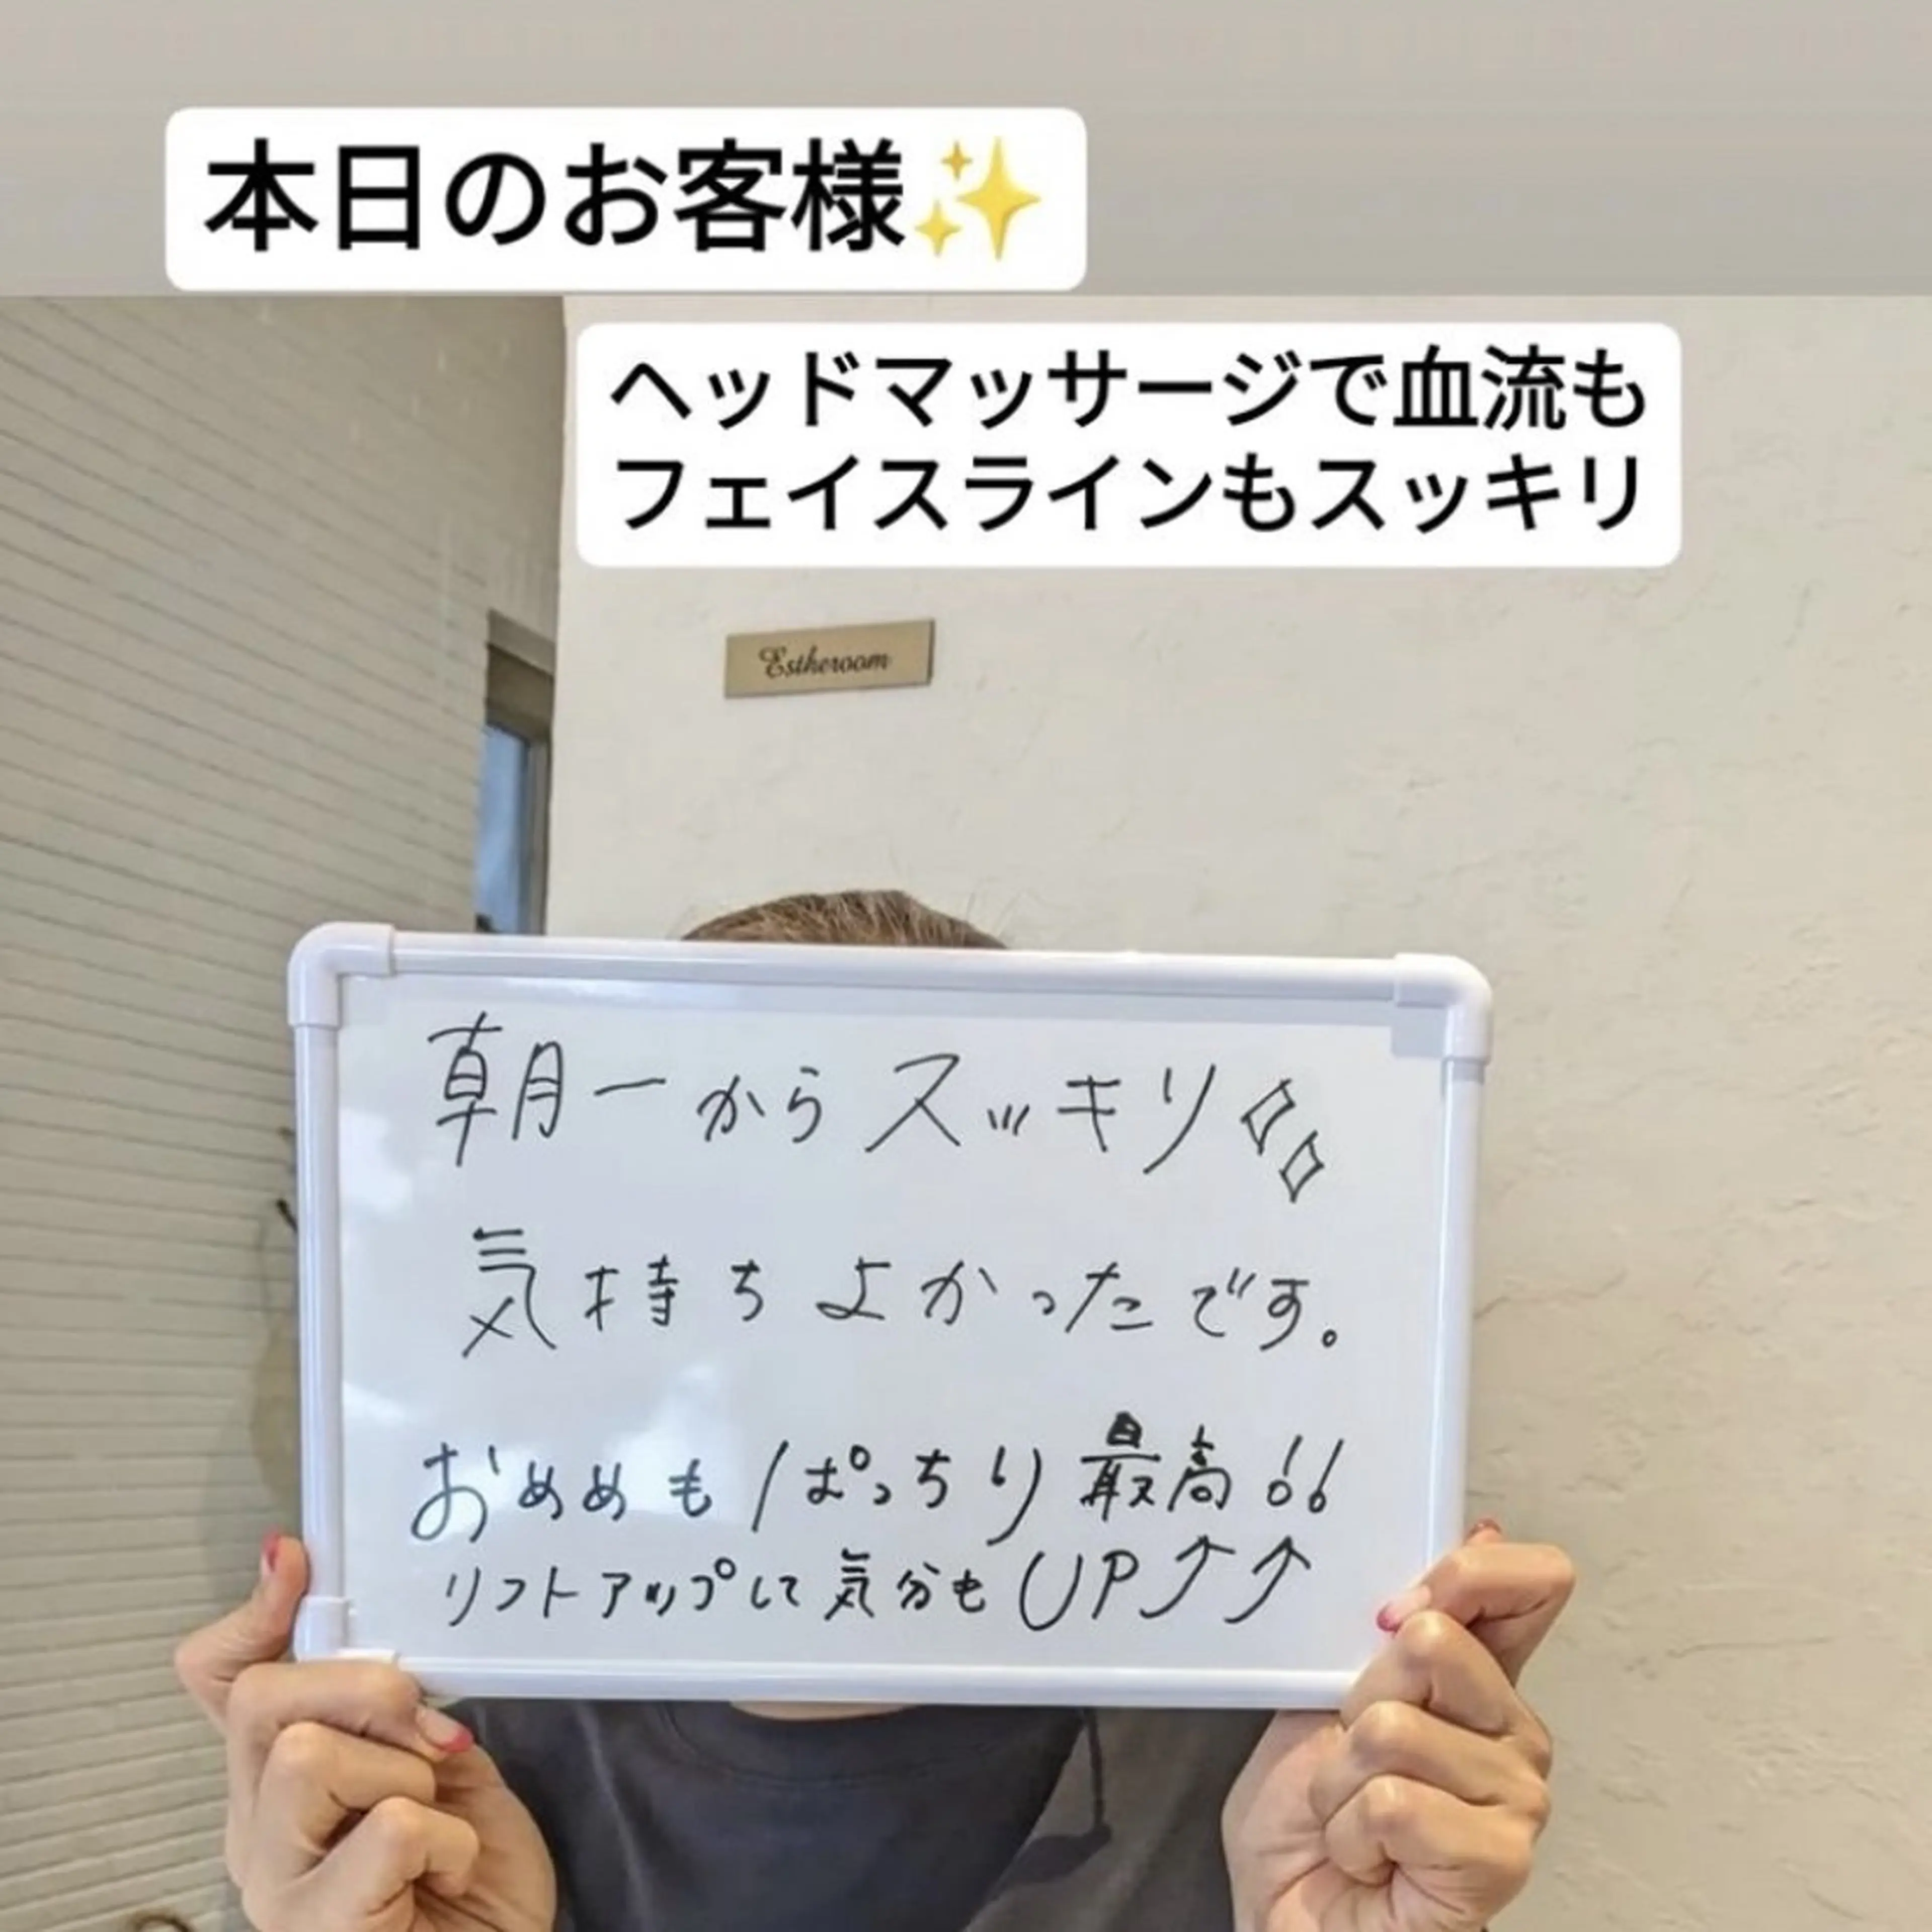 本日のお客様✨
ヘッドマッサージで血流も
フェイスラインもスッキリ
Estheroom
朝一からスッキリ
気持ちよかったです。
おめめもぱっちり最高!!
リフトアップして気分もUP↑↑